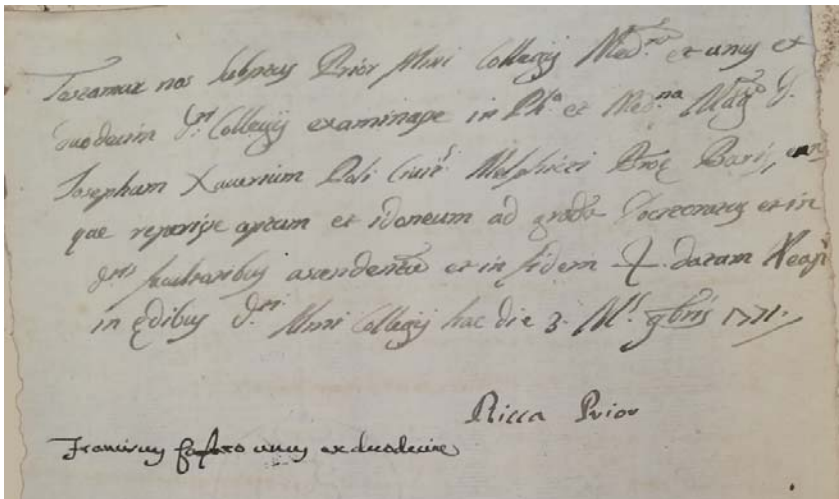 Testamur nos subptus Prior Almi Collegij Med.rum et unus ex
duodecim d.ti Collegij examinasse in Ph.a et Med.na Mag.cum D.
Josephum Xaverium Poli Civit.s Melphicti Proę Barij, eum
que reperisse aptum et idoneum ad gradū Doctoratus et in
d.tis facultatibus ascendendū et in fidem datam Neapi
in ędibus d.ti Almi Collegij hac die 3. M.s 9bris 1771.
Ricca Prior
Franciscus unus ex duodecim